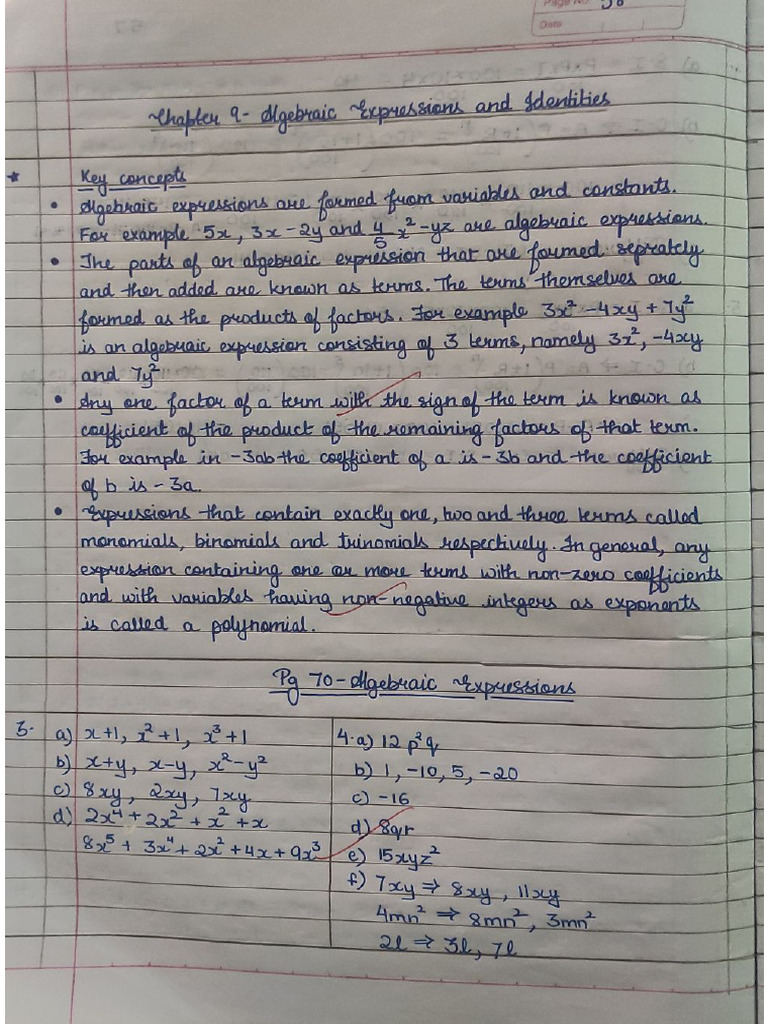 Page No. 58
Date
Chapter 9- Algebraic Expressions and Identities
* Key concepts
• Algebraic expressions are formed from variables and constants.
For example 5x, 3x-2y and 4/5 x²-yz are algebraic expressions.
• The parts of an algebraic expression that are formed seprately
and then added are known as terms. The terms themselves are
formed as the products of factors. For example 3x²-4xy+7y²
is an algebraic expression consisting of 3 terms, namely 3x², -4xy
and 7y²
• Any one factor of a term with the sign of the term is known as
coefficient of the product of the remaining factors of that term.
For example in -3ab the coefficient of a is -3b and the coefficient
of b is -3a.
• Expressions that contain exactly one, two and three terms called
monomials, binomials and trinomials respectively. In general, any
expression containing one or more terms with non-zero coefficients
and with variables having non-negative integers as exponents
is called a polynomial.
Pg 70-Algebraic Expressions
3. a) x+1, x²+1, x³+1
b) x+y, x-y, x²-y²
c) 8xy, 2xy, 7xy
d) 2x⁴+2x²+x²+x
8x⁵+3x⁴+2x²+4x+9x³
4. a) 12p²q
b) 1, -10, 5, -20
c) -16
d) 8qr
e) 15xyz²
f) 7xy ⇒ 8xy, 11xy
4mn² ⇒ 8mn², 3mn²
2l ⇒ 3l, 7l